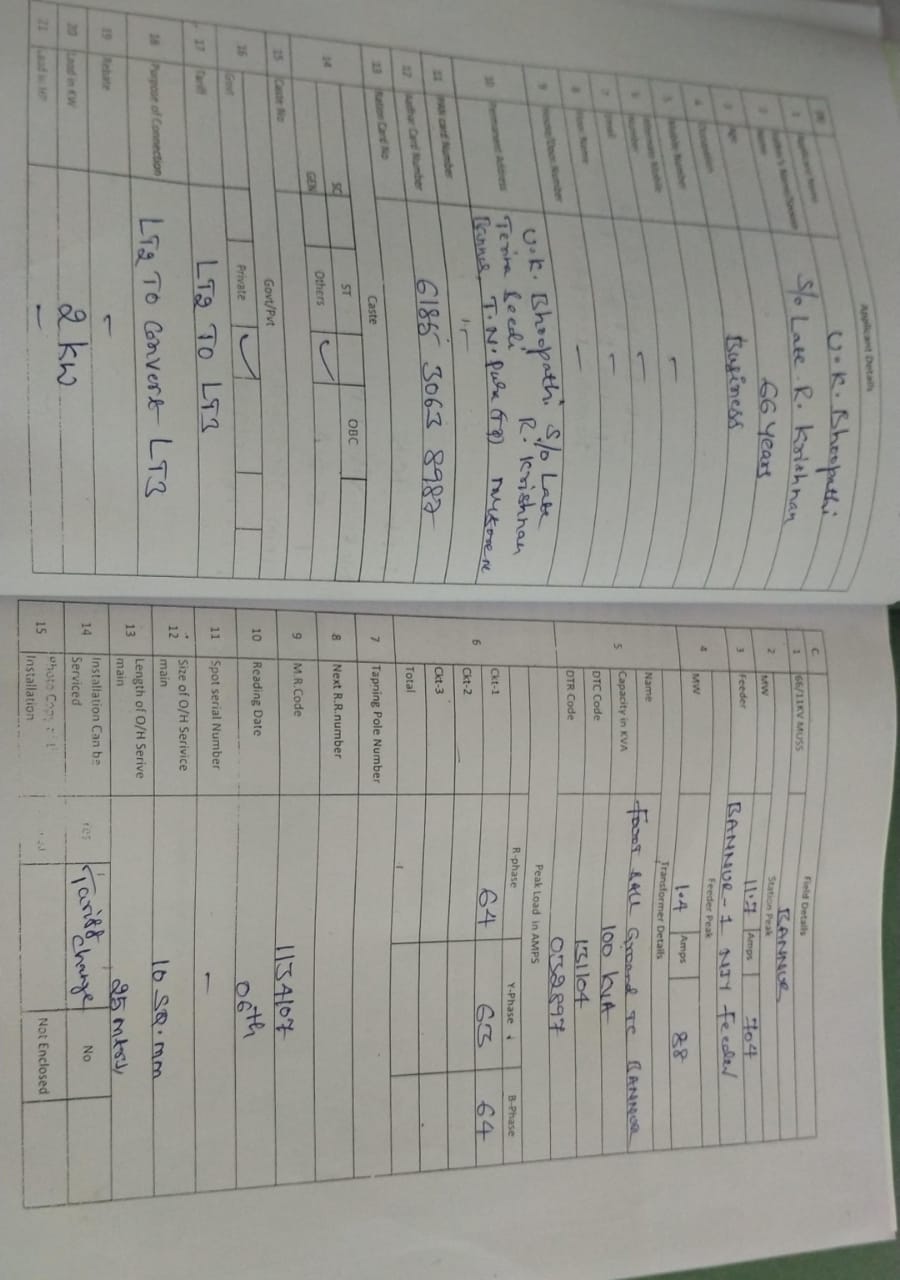 Applicant Details
1 Applicant Name U.K. Bhoopathi
2 Father's Name/Spouse Name S/o Late. R. Krishnan
3 Age 66 years
4 Occupation Business
5 Mobile Number -
6 Alternate Mobile Number -
7 Email -
8 Floor Name -
9 House/Door Number
10 Permanent Address U.K. Bhoopathi S/o Late R. Krishnan
Bannur, T.N. Pura (TQ)
11 PAN card Number
12 Aadhar Card Number 6185 3063 8987
13 Ration Card No
Caste
14 SC ST OBC
GEN Others ✓
15 Caste No
Govt/Pvt
16 Govt Private ✓
17 Tariff LT2 TO LT3
18 Purpose of Connection LT2 To Convert LT3
19 Rebate -
20 Load in KW 2 KW
21 Load in HP -
C. Field Details
1 66/11KV MUSS BANNUR
Station Peak
2 MW 11.7 Amps 704
3 Feeder BANNUR-1 NJY Feeder
Feeder Peak
4 MW 1.4 Amps 88
Transformer Details
5 Name Ground TC BANNUR
Capacity in KVA 100 KVA
DTC Code 131104
DTR Code 0332897
Peak Load in AMPS
R-phase Y-Phase B-Phase
6 Ckt-1 64 63 64
Ckt-2
Ckt-3
Total
7 Tapning Pole Number
8 Next R.R.number
9 M.R.Code 1134107
10 Reading Date 06th
11 Spot serial Number -
12 Size of O/H Serivice main 10 SQ.mm
13 Length of O/H Serive main 25 mtrs,
14 Installation Can be Serviced Yes Tariff change No
15 Photo Copy Installation Not Enclosed